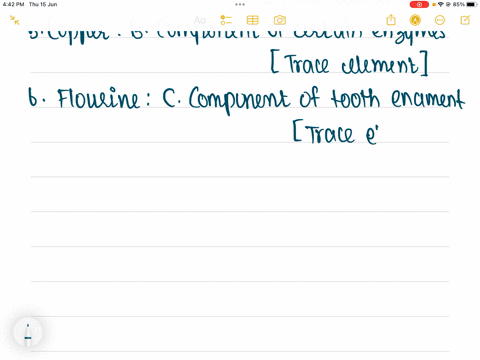 4:42 PM Thu 15 Jun
85%
Aa
5. Copper : B. Component of certain enzymes
[Trace element]
6. Flourine : C. Component of tooth enament
[Trace e